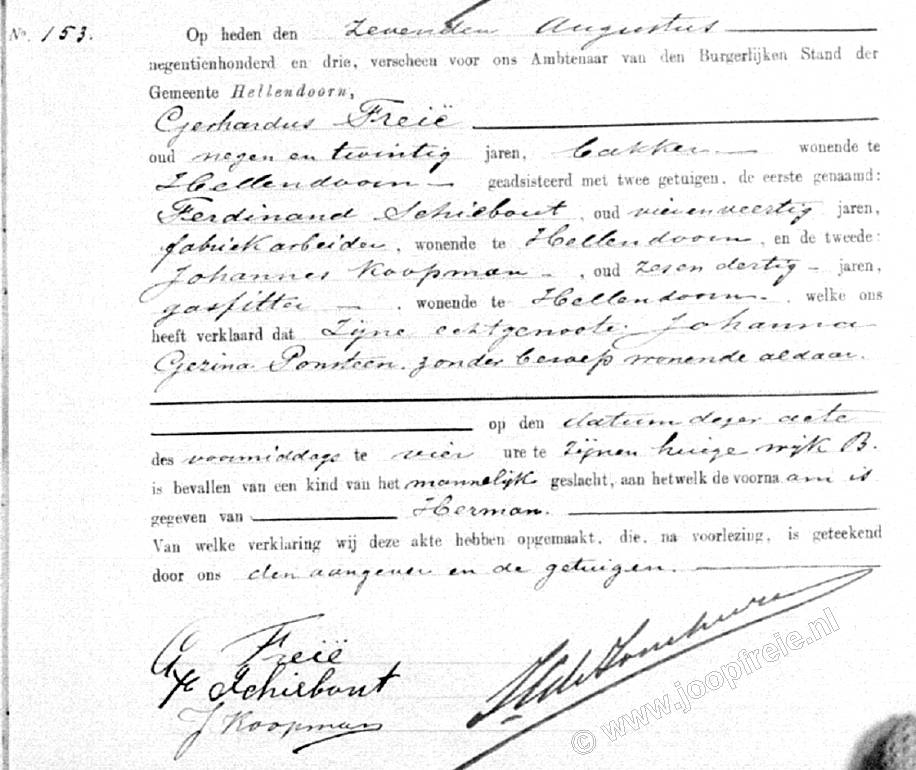 No. 153.
Op heden den zevenden Augustus
negentienhonderd en drie, verscheen voor ons Ambtenaar van den Burgerlijken Stand der
Gemeente Hellendoorn,
Gerhardus Freïë
oud negen en twintig jaren, bakker wonende te
Hellendoorn geadsisteerd met twee getuigen, de eerste genaamd:
Ferdinand Schiebout, oud vierenveertig jaren,
fabriekarbeider, wonende te Hellendoorn, en de tweede:
Johannes Koopman, oud zesendertig jaren,
gasfitter, wonende te Hellendoorn, welke ons
heeft verklaard dat zijne echtgenoote Johanna
Gezina Ponsteen, zonder beroep wonende aldaar.
op den datum dezer acte
des voormiddags te vier ure te zijnen huize wijk B.
is bevallen van een kind van het mannelijk geslacht, aan hetwelk de voornaam is
gegeven van Herman.
Van welke verklaring wij deze akte hebben opgemaakt, die, na voorlezing, is geteekend
door ons den aangever en de getuigen.
G Freïë
F Schiebout
J Koopman
© www.joopfreie.nl